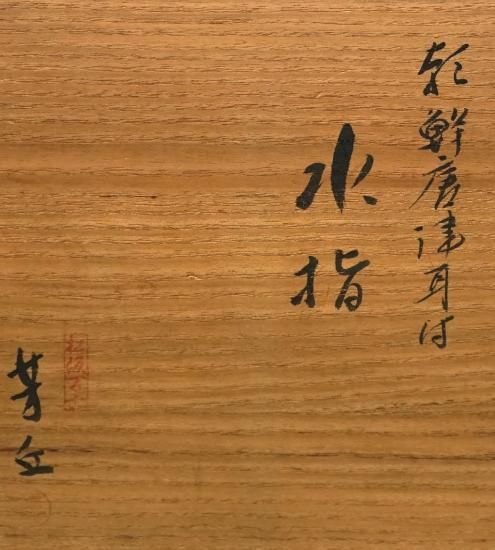 朝鮮唐津耳付
水指
芳丘